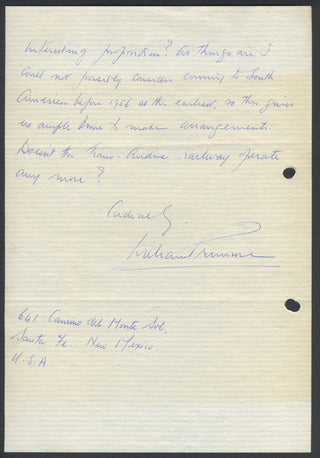 interesting proposition? As things are I
could not possibly consider coming to South
America before 1956 at the earliest, so this gives
us ample time to make arrangements.
Doesn't the Trans-Andine railway operate
any more?
Cordially.
William Primrose
641 Camino del Monte Sol.
Santa Fe. New Mexico.
U.S.A.